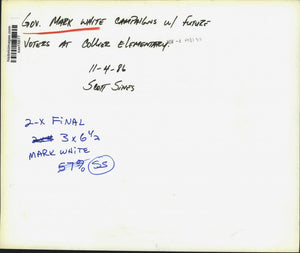 Gov. MARK WHITE CAMPAIGNS w/ FUTURE
VOTERS AT COLLIER ELEMENTARY.
11-4-86
SCOTT SINES
2-X FINAL
3 x 6 1/2
MARK WHITE
57%
SS